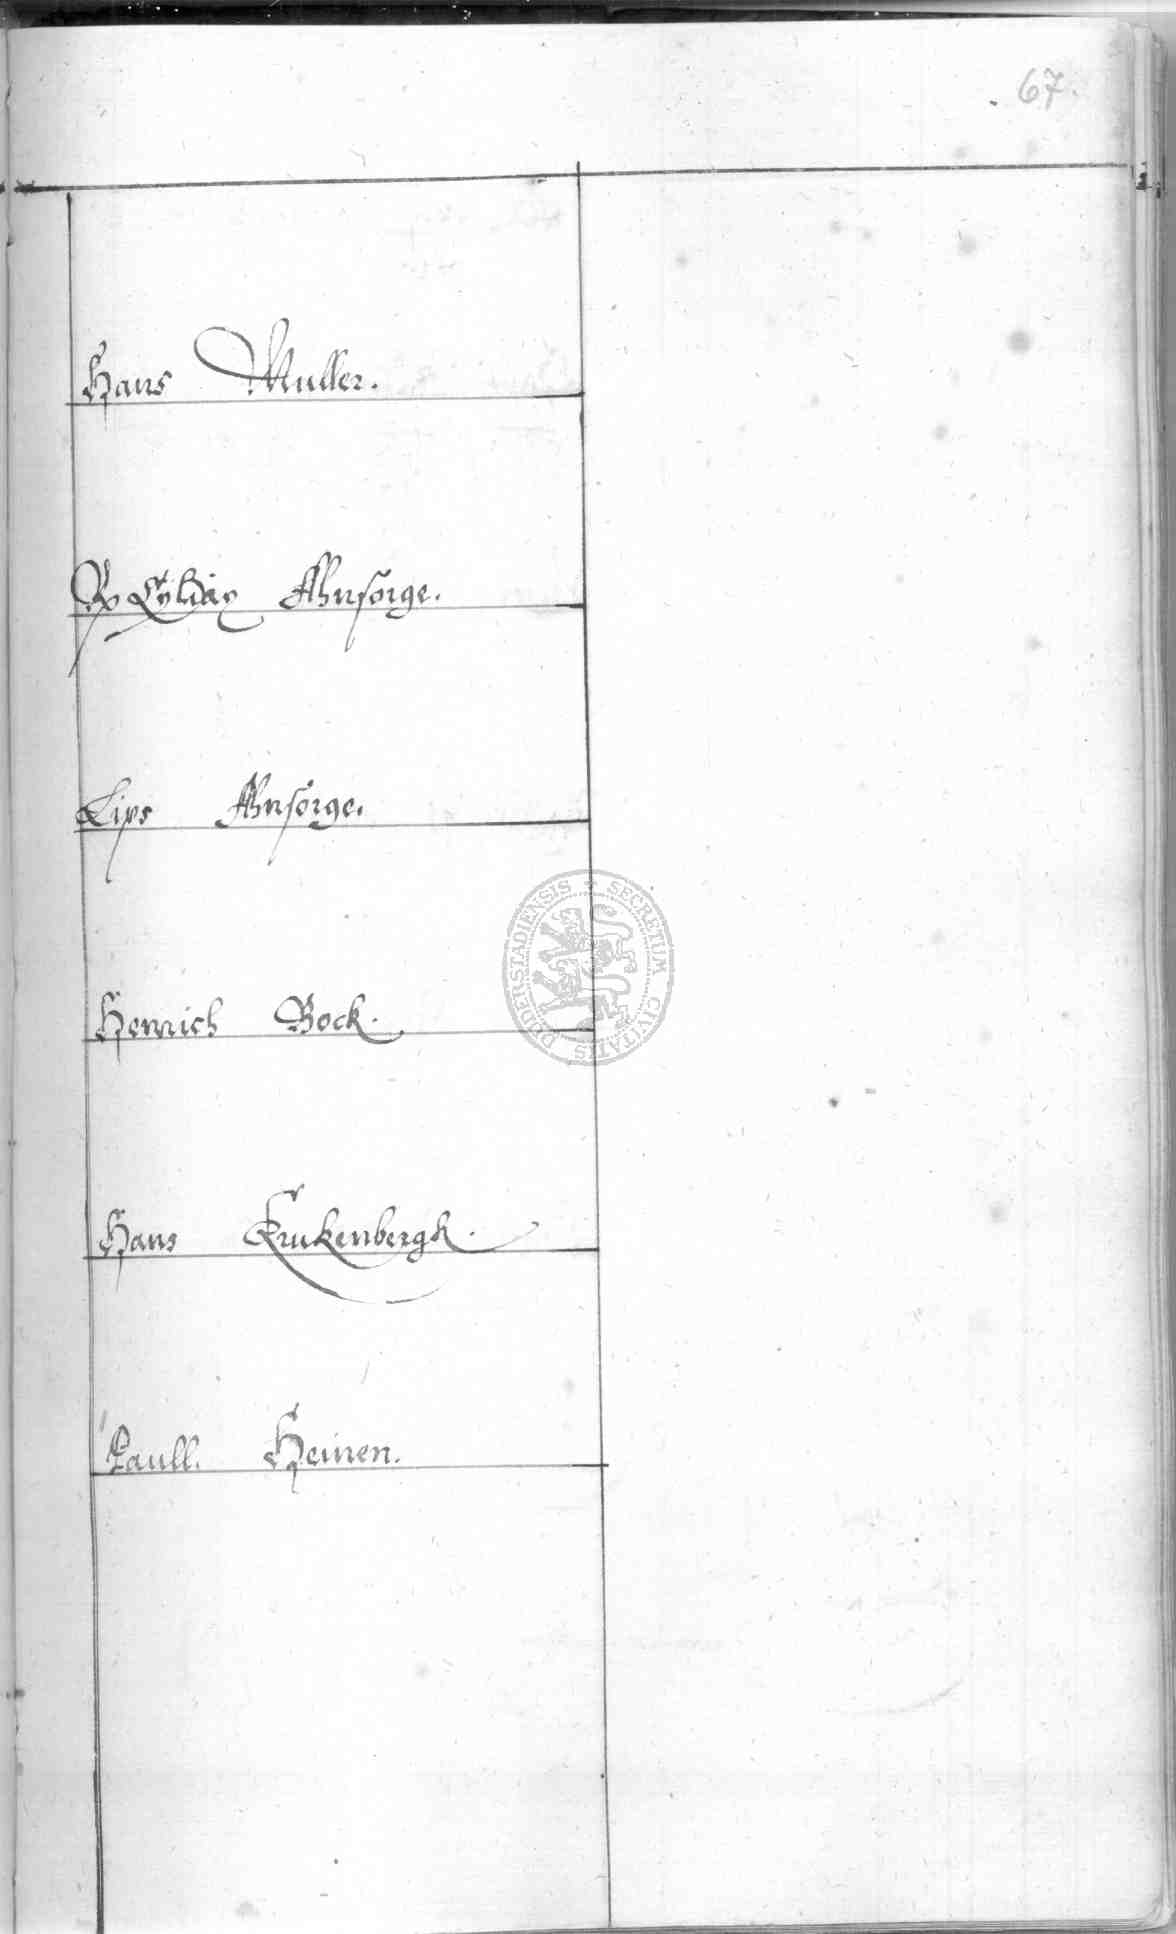 67.
Hans Muller.
Ahnsorge.
Lips Ahnsorge.
Henrich Bock.
Hans Krukenbergk.
Paull. Heinen.
SECRETUM CIVITATIS DUDERSTADIENSIS